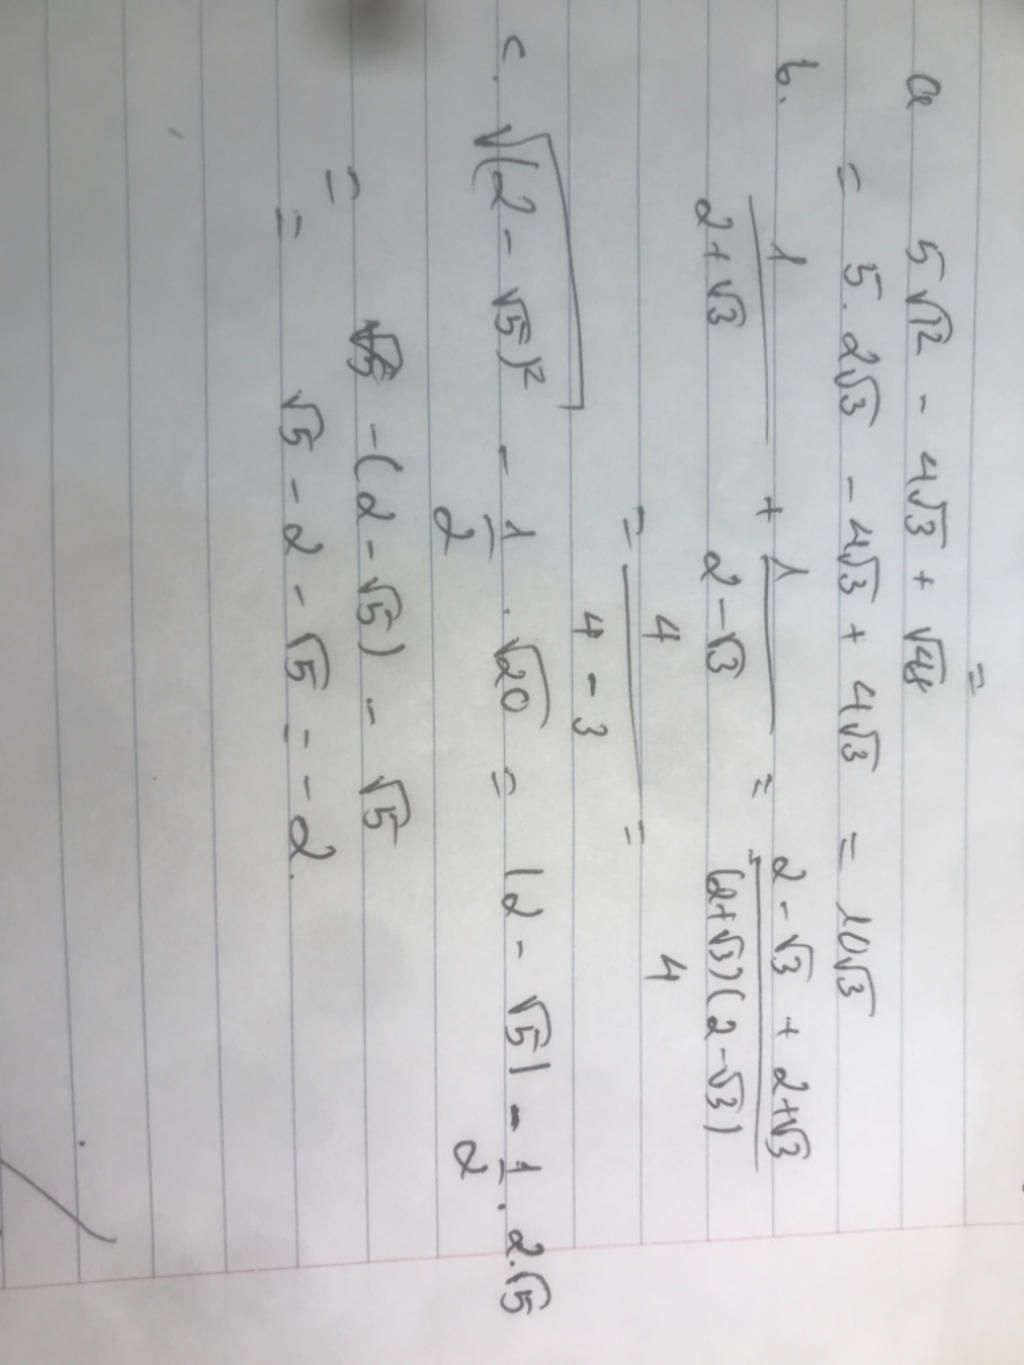 a 5√12 - 4√3 + √48 =
= 5.2√3 - 4√3 + 4√3 = 10√3
b. 1/(2+√3) + 1/(2-√3) = (2-√3 + 2+√3)/((2+√3)(2-√3))
= 4/(4-3) = 4
c. √((2-√5)²) - 1/2 . √20 = |2-√5| - 1/2 . 2.√5
= -(2-√5) - √5
= √5 - 2 - √5 = -2.